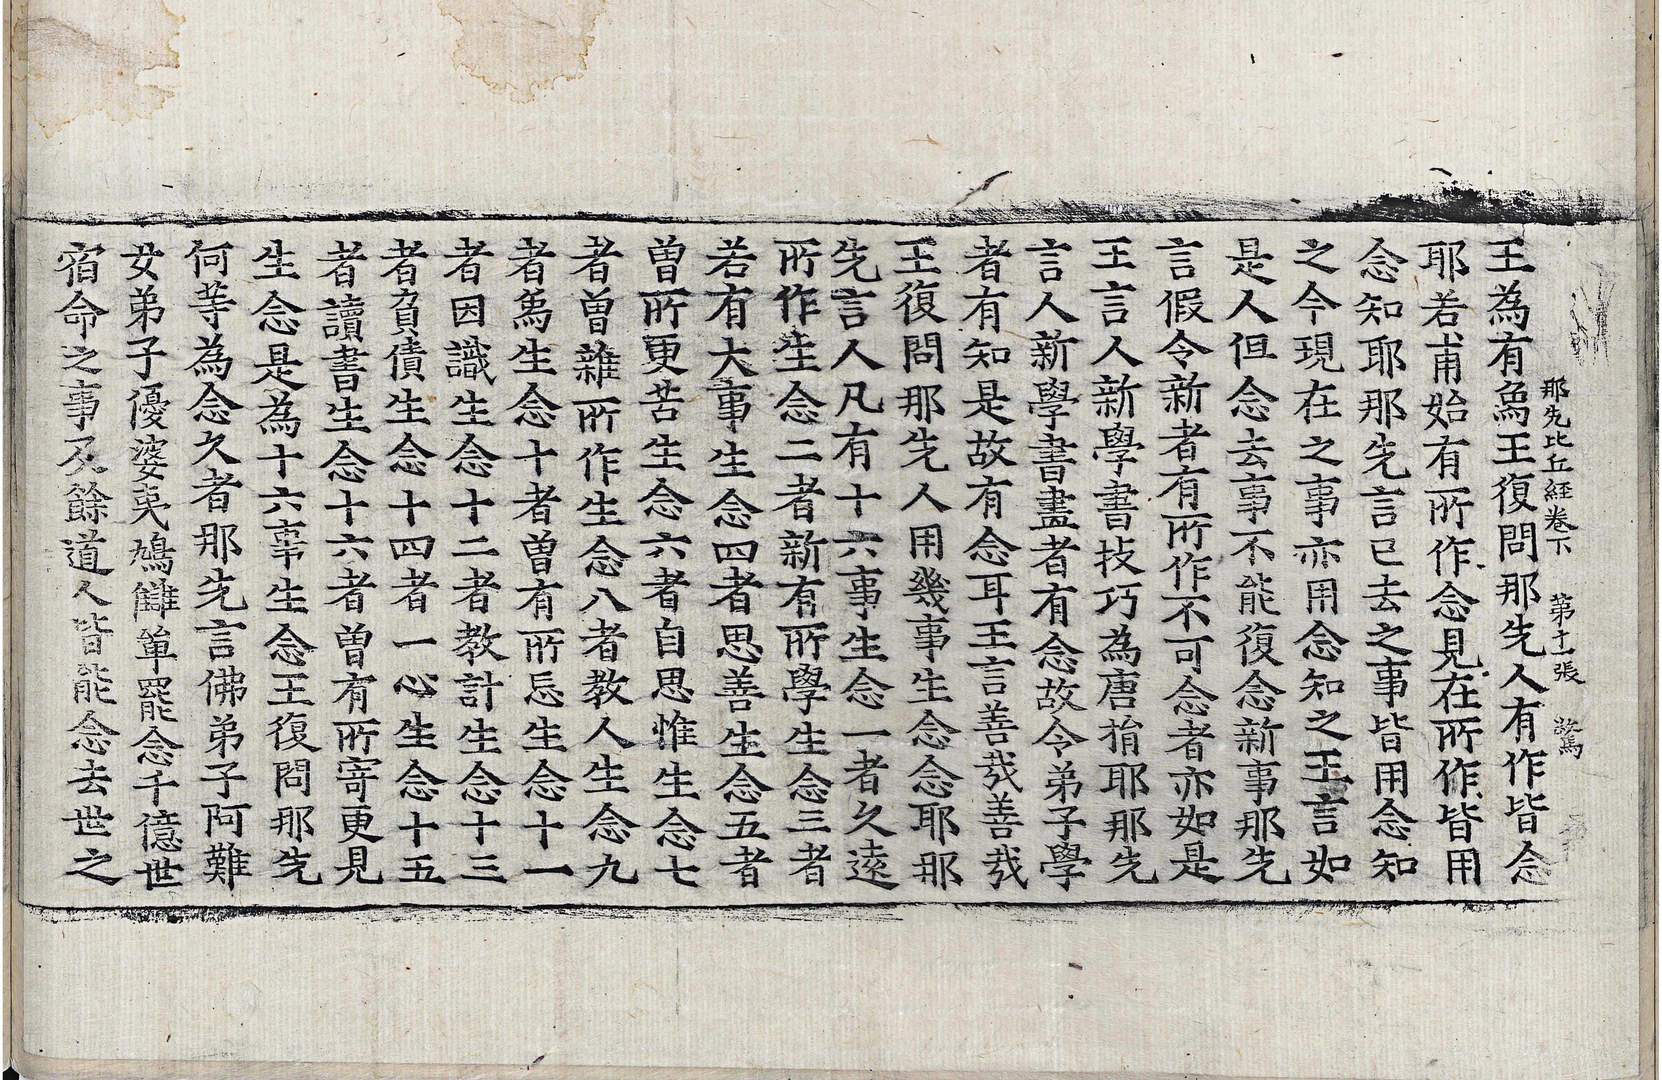 那先比丘經卷下 第十一張 驚
王為有烏王復問那先人有作皆念
耶若甫始有所作念見在所作皆用
念知耶那先言已去之事皆用念知
之今現在之事亦用念知之王言如
是人但念去事不能復念新事那先
言假令新者有所作不可念者亦如是
王言人新學書技巧為唐捐耶那先
言人新學書畫者有念故令弟子學
者有知是故有念耳王言善哉善哉
王復問那先人用幾事生念念耶那
先言人凡有十六事生念一者久遠
所作生念二者新有所學生念三者
若有大事生念四者思善生念五者
曾所更苦生念六者自思惟生念七
者曾雜所作生念八者教人生念九
者為生念十者曾有所忘生念十一
者因識生念十二者教計生念十三
者負債生念十四者一心生念十五
者讀書生念十六者曾有所寄更見
生念是為十六事生念王復問那先
何等為念久者那先言佛弟子阿難
女弟子優婆夷鳩讎單罷念千億世
宿命之事及餘道人皆能念去世之